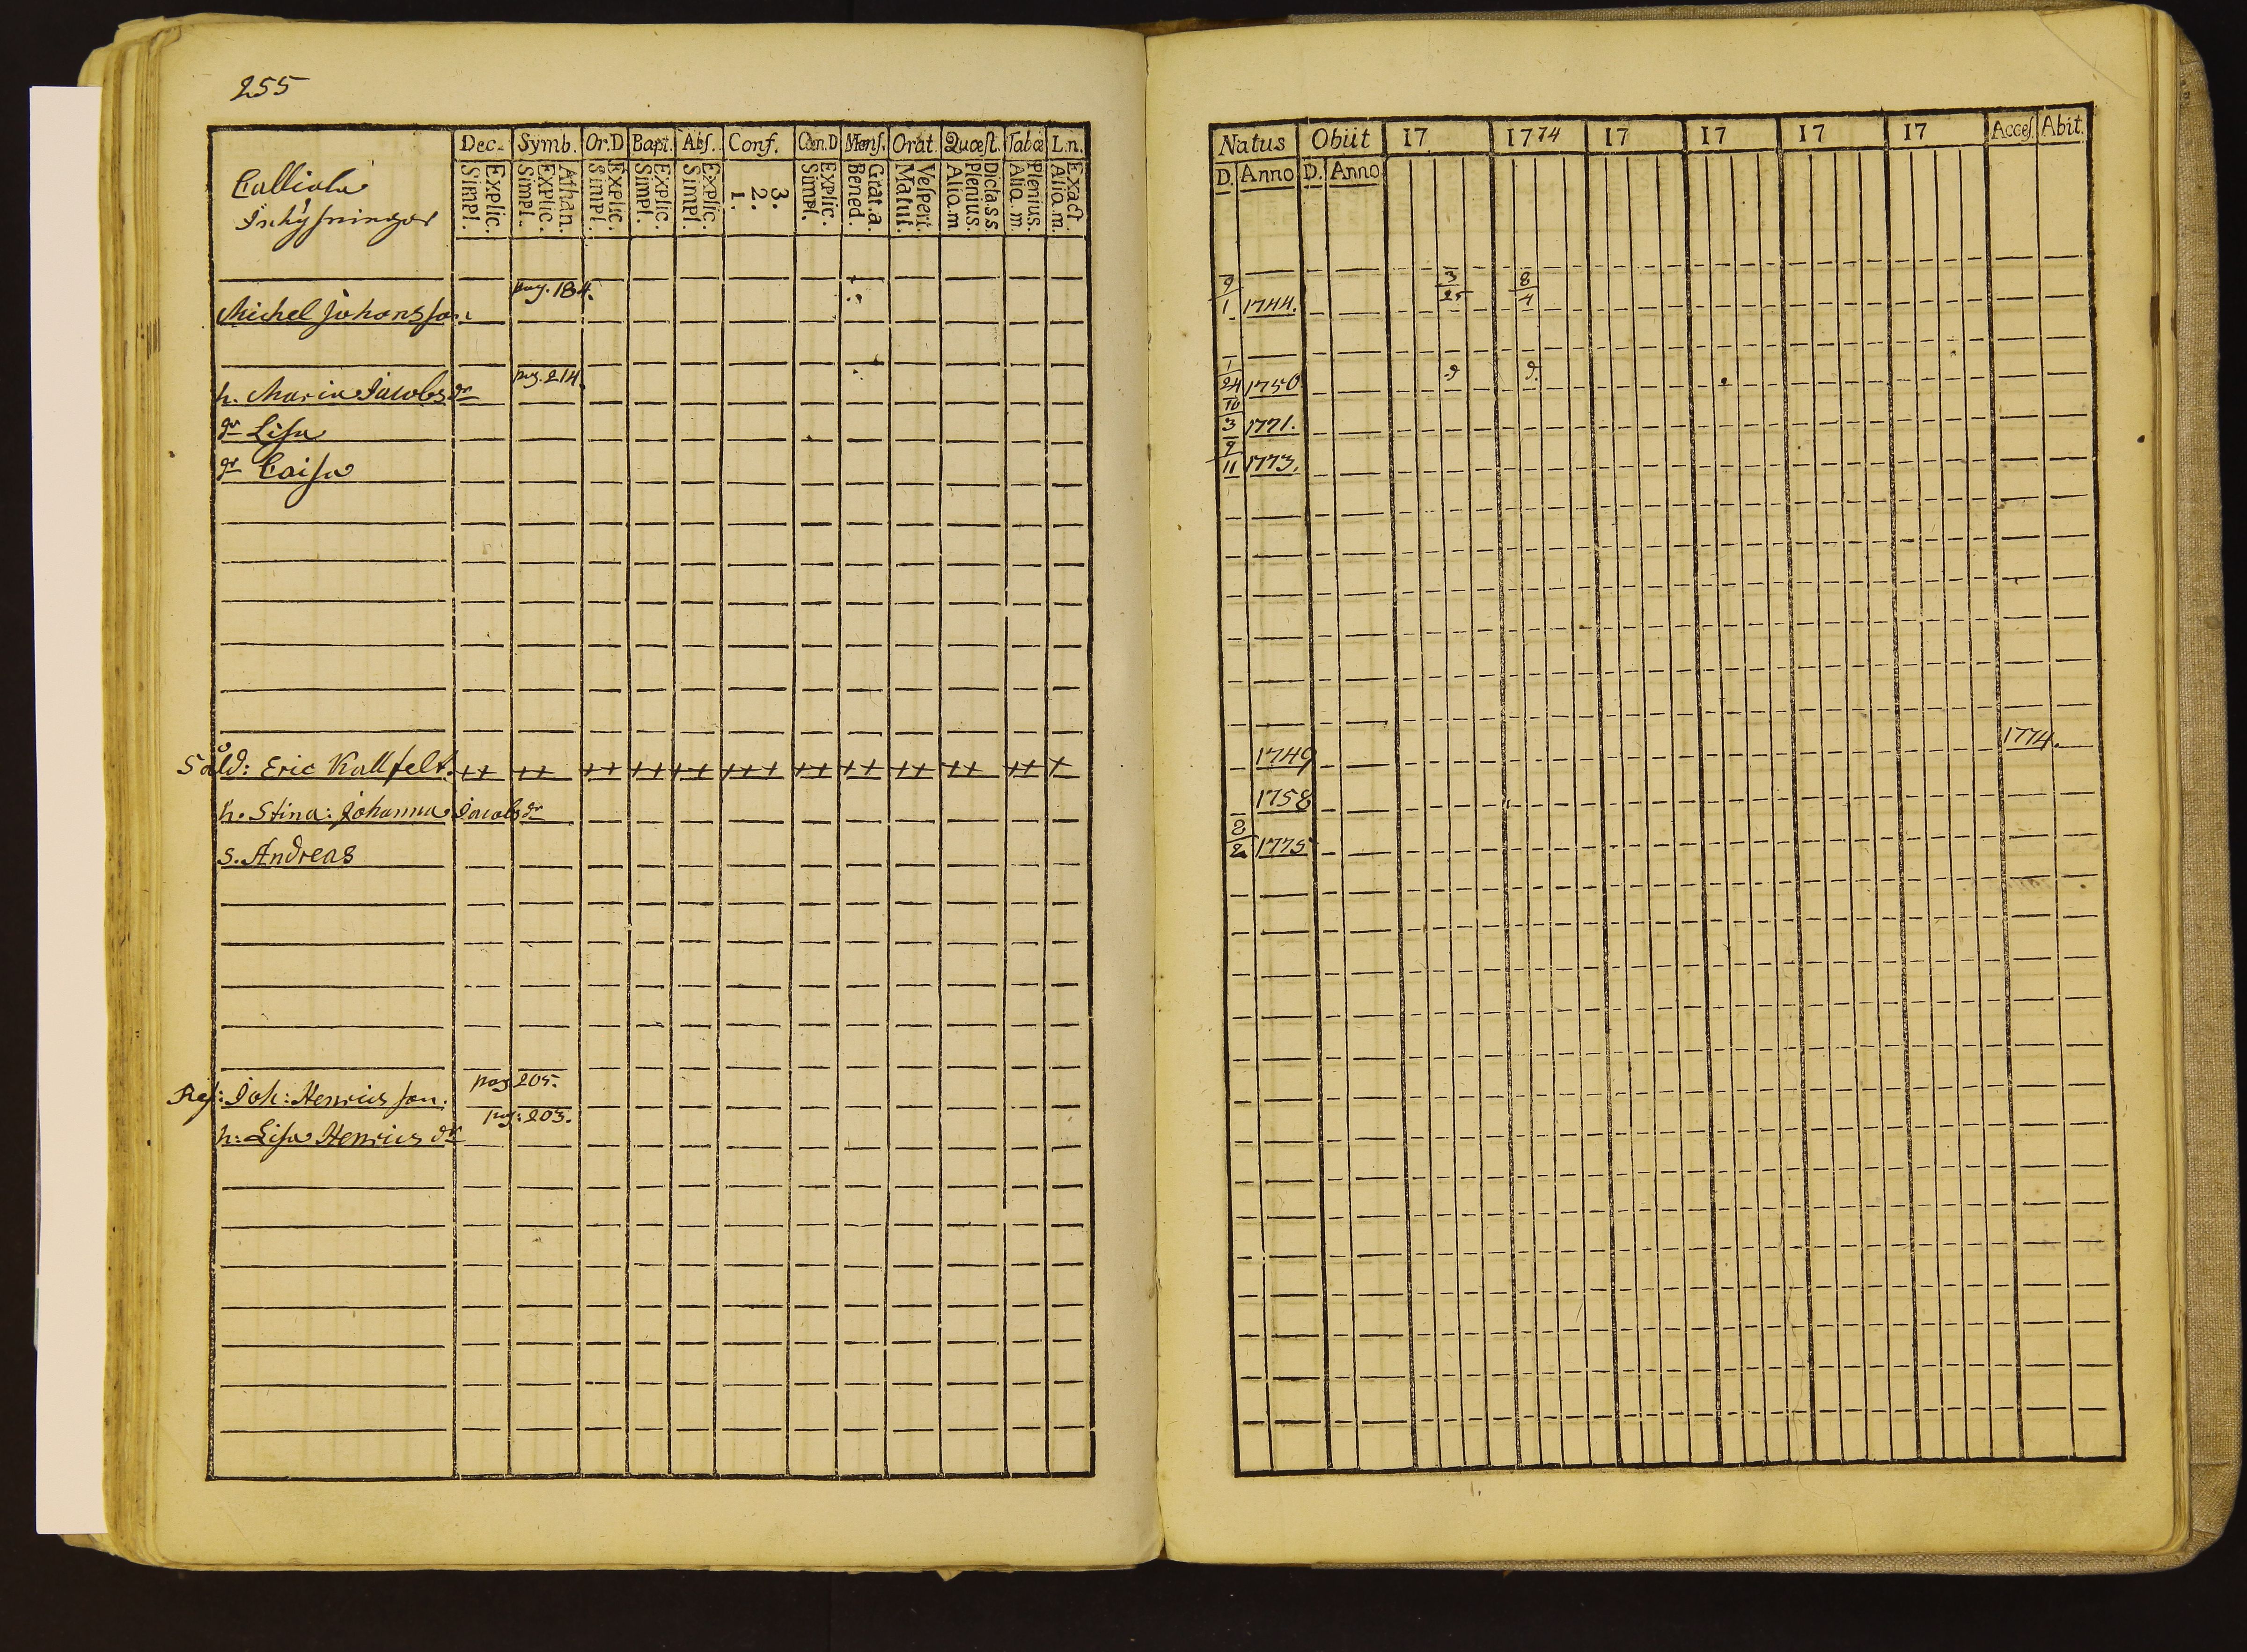 255
Calliala
Inhysningar
Dec. Symb. Or.D Bapt. Abſ. Conf. Cœn.D Menſ. Orat. Quæſt. Tabœ L.n.
Explic. Simpl. Athan. Explic. Simpl. Explic. Simpl. Explic. Simpl. Explic. Simpl. 3. 2. 1. Explic. Simpl. Grat.a. Bened. Veſpert. Matut. Dictass Plenius. Aliq.m Plenius. Aliq.m. Exact. Aliq.m.
Natus Obiit 17 1774 17 17 17 17 Acceſ. Abit.
D. Anno D. Anno
pag. 184.
Michel Johansſon 9/1 1744. 3/25 8/4
pag. 214.
h. Maria Jacobs dr 1/24 1750 d. d.
dr Liſa 10/3 1771.
dr Caiſa 9/11 1773.
Sold: Eric Kallfelt. ++ ++ ++ ++ ++ +++ ++ ++ ++ ++ ++ + 1749 1774.
h. Stina: Johanna Jacobs dr 1758
s. Andreas 2/2 1775
pag 205.
Reſ: Joh: Henricsſon.
pag: 203.
h: Liſa Henrics dr